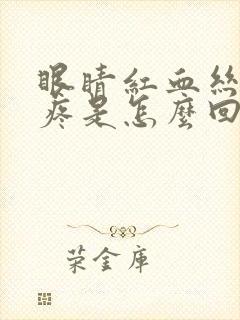 眼睛紅血絲
疼是怎麼回
榮金庫